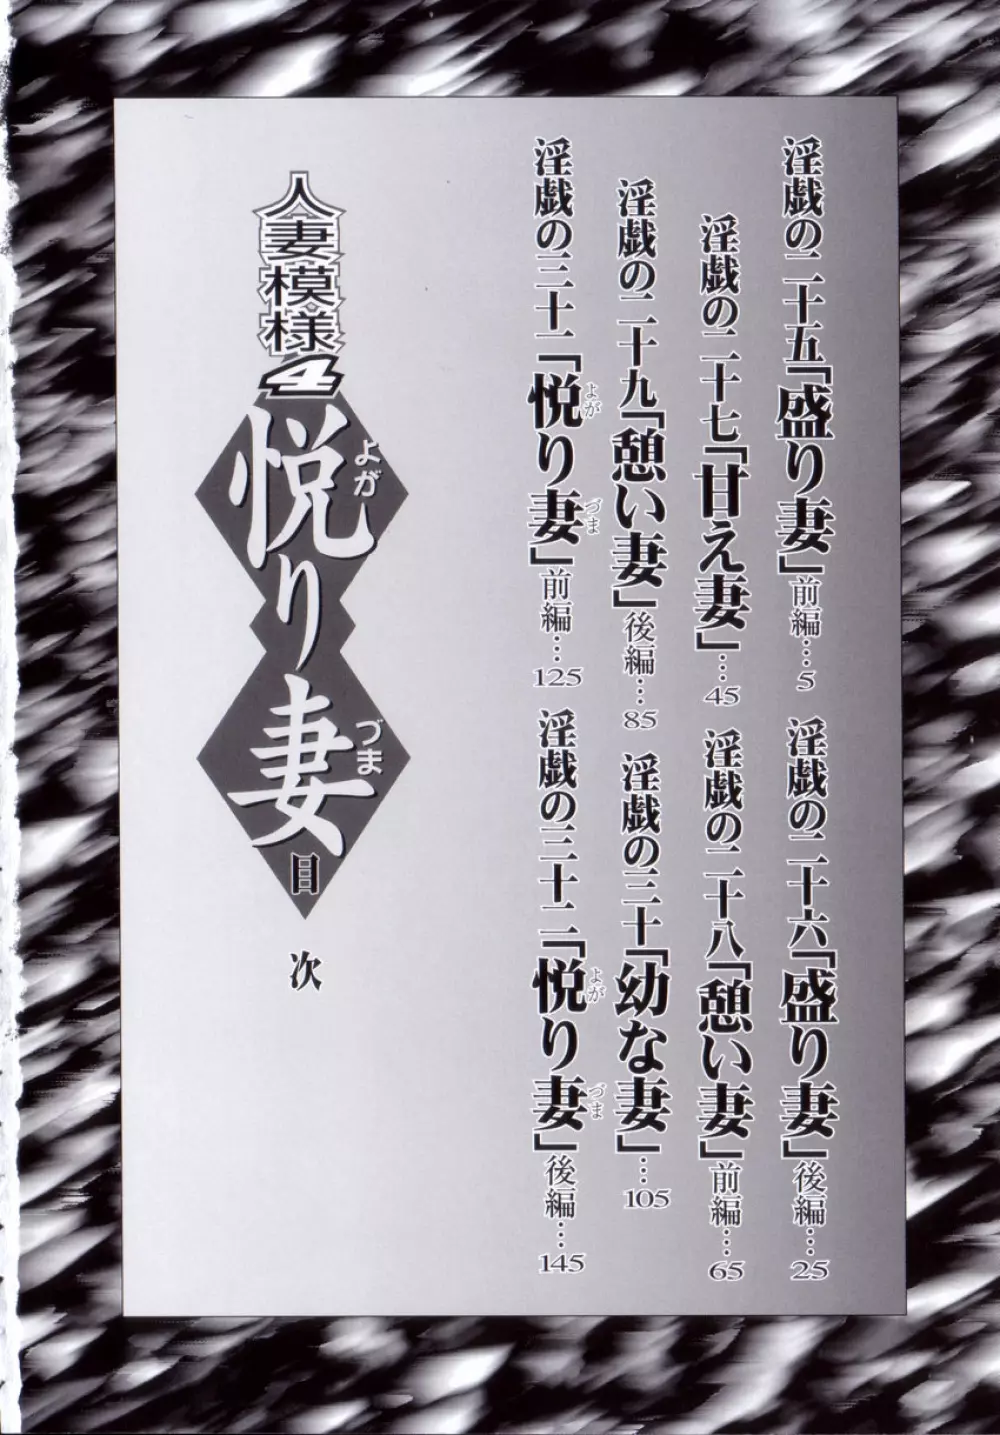 淫戯の二十五「盛り妻」前編…5
淫戯の二十六「盛り妻」後編…25
淫戯の二十七「甘え妻」…45
淫戯の二十八「憩い妻」前編…65
淫戯の二十九「憩い妻」後編…85
淫戯の三十「幼な妻」…105
淫戯の三十一「悦り妻」前編…125
よが
づま
淫戯の三十二「悦り妻」後編…145
よが
づま
人妻模・様4
悦り妻
よが
づま
目次